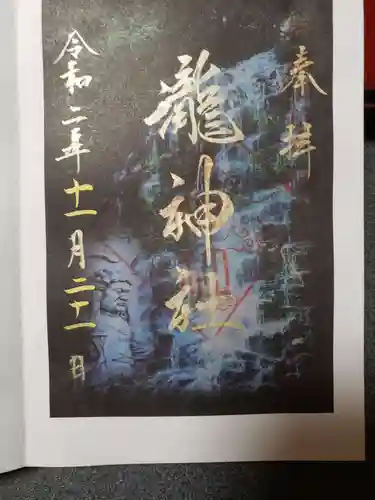 奉拝
瀧神社
令和二年十一月二十一日